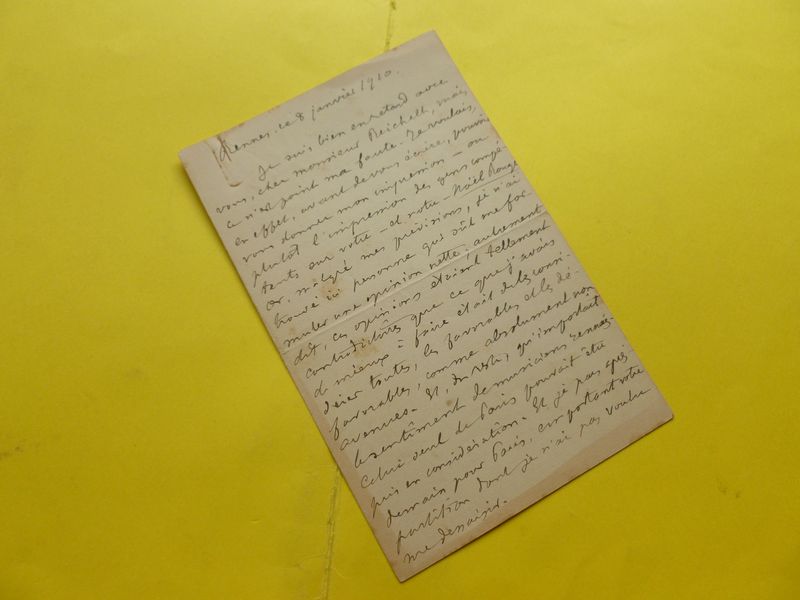 Rennes, ce 8 janvier 1910.
Je suis bien en retard avec
vous, cher monsieur Reichelt, mais
ce n'est point ma faute. Je voulais,
en effet, avant de vous écrire, pouvoir
vous donner mon impression – ou
plutôt l'impression des gens compé-
tents sur votre – et notre – Noël Rouge
Or, malgré mes prévisions, je n'ai
trouvé ici personne qui sût me for-
muler une opinion nette; autrement
dit, ces opinions étaient tellement
contradictoires que ce que j'avais
de mieux à faire était de les consi-
dérer toutes, les favorables et les dé-
favorables, comme absolument non
avenues. Et, du reste, qu'importait
le sentiment de musiciens rennais
Celui seul de Paris pouvait être
pris en considération. Et je pars après
demain pour Paris, emportant votre
partition dont je n'ai pas voulu
me dessaisir.